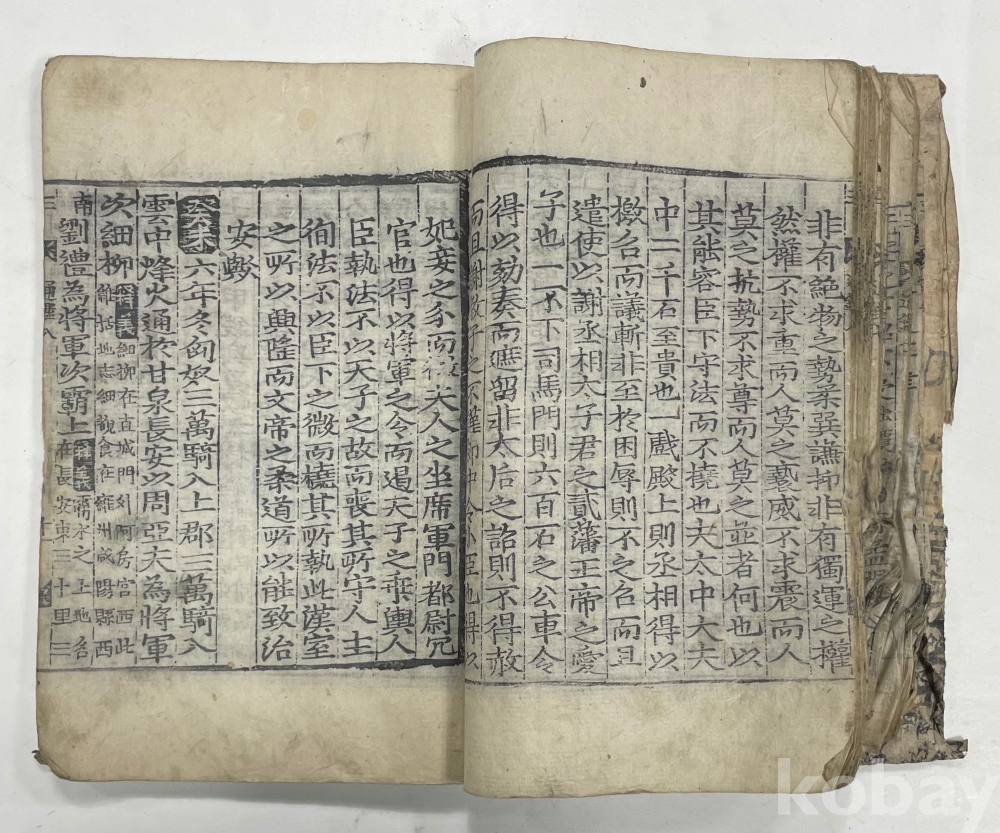 非有絶物之勢柔巽謙抑非有獨運之權
然權不求重而人莫之藐威不求震而人
莫之抗勢不求尊而人莫之並者何也以
其能容臣下守法而不撓也夫太中大夫
中二千石至貴也一戱殿上則丞相得以
檄召而議斬非至於困辱則不之召而且
遣使以謝丞相太子君之貳藩王帝之愛
子也一不下司馬門則六百石之公車令
得以劾奏而遮留非太后之詔則不得赦
而且謝教子之不謹郎中令小臣也得以
妃妾之分而徹夫人之坐席軍門都尉冗
官也得以將軍之令而遏天子之乗輿人
臣執法不以天子之故而喪其所守人主
徇法不以臣下之微而撓其所執此漢室
之所以興隆而文帝之柔道所以能致治
安歟
癸未六年冬匈奴三萬騎入上郡三萬騎入
雲中烽火通於甘泉長安以周亞夫為將軍
次細柳 釋義 細柳在直城門外阿房宮西北
雍 括地志細 食在雍州咸陽縣西
南
劉禮為將軍次霸上 釋義 霸水之上地名
在長安東三十里
通鑑八
kobay